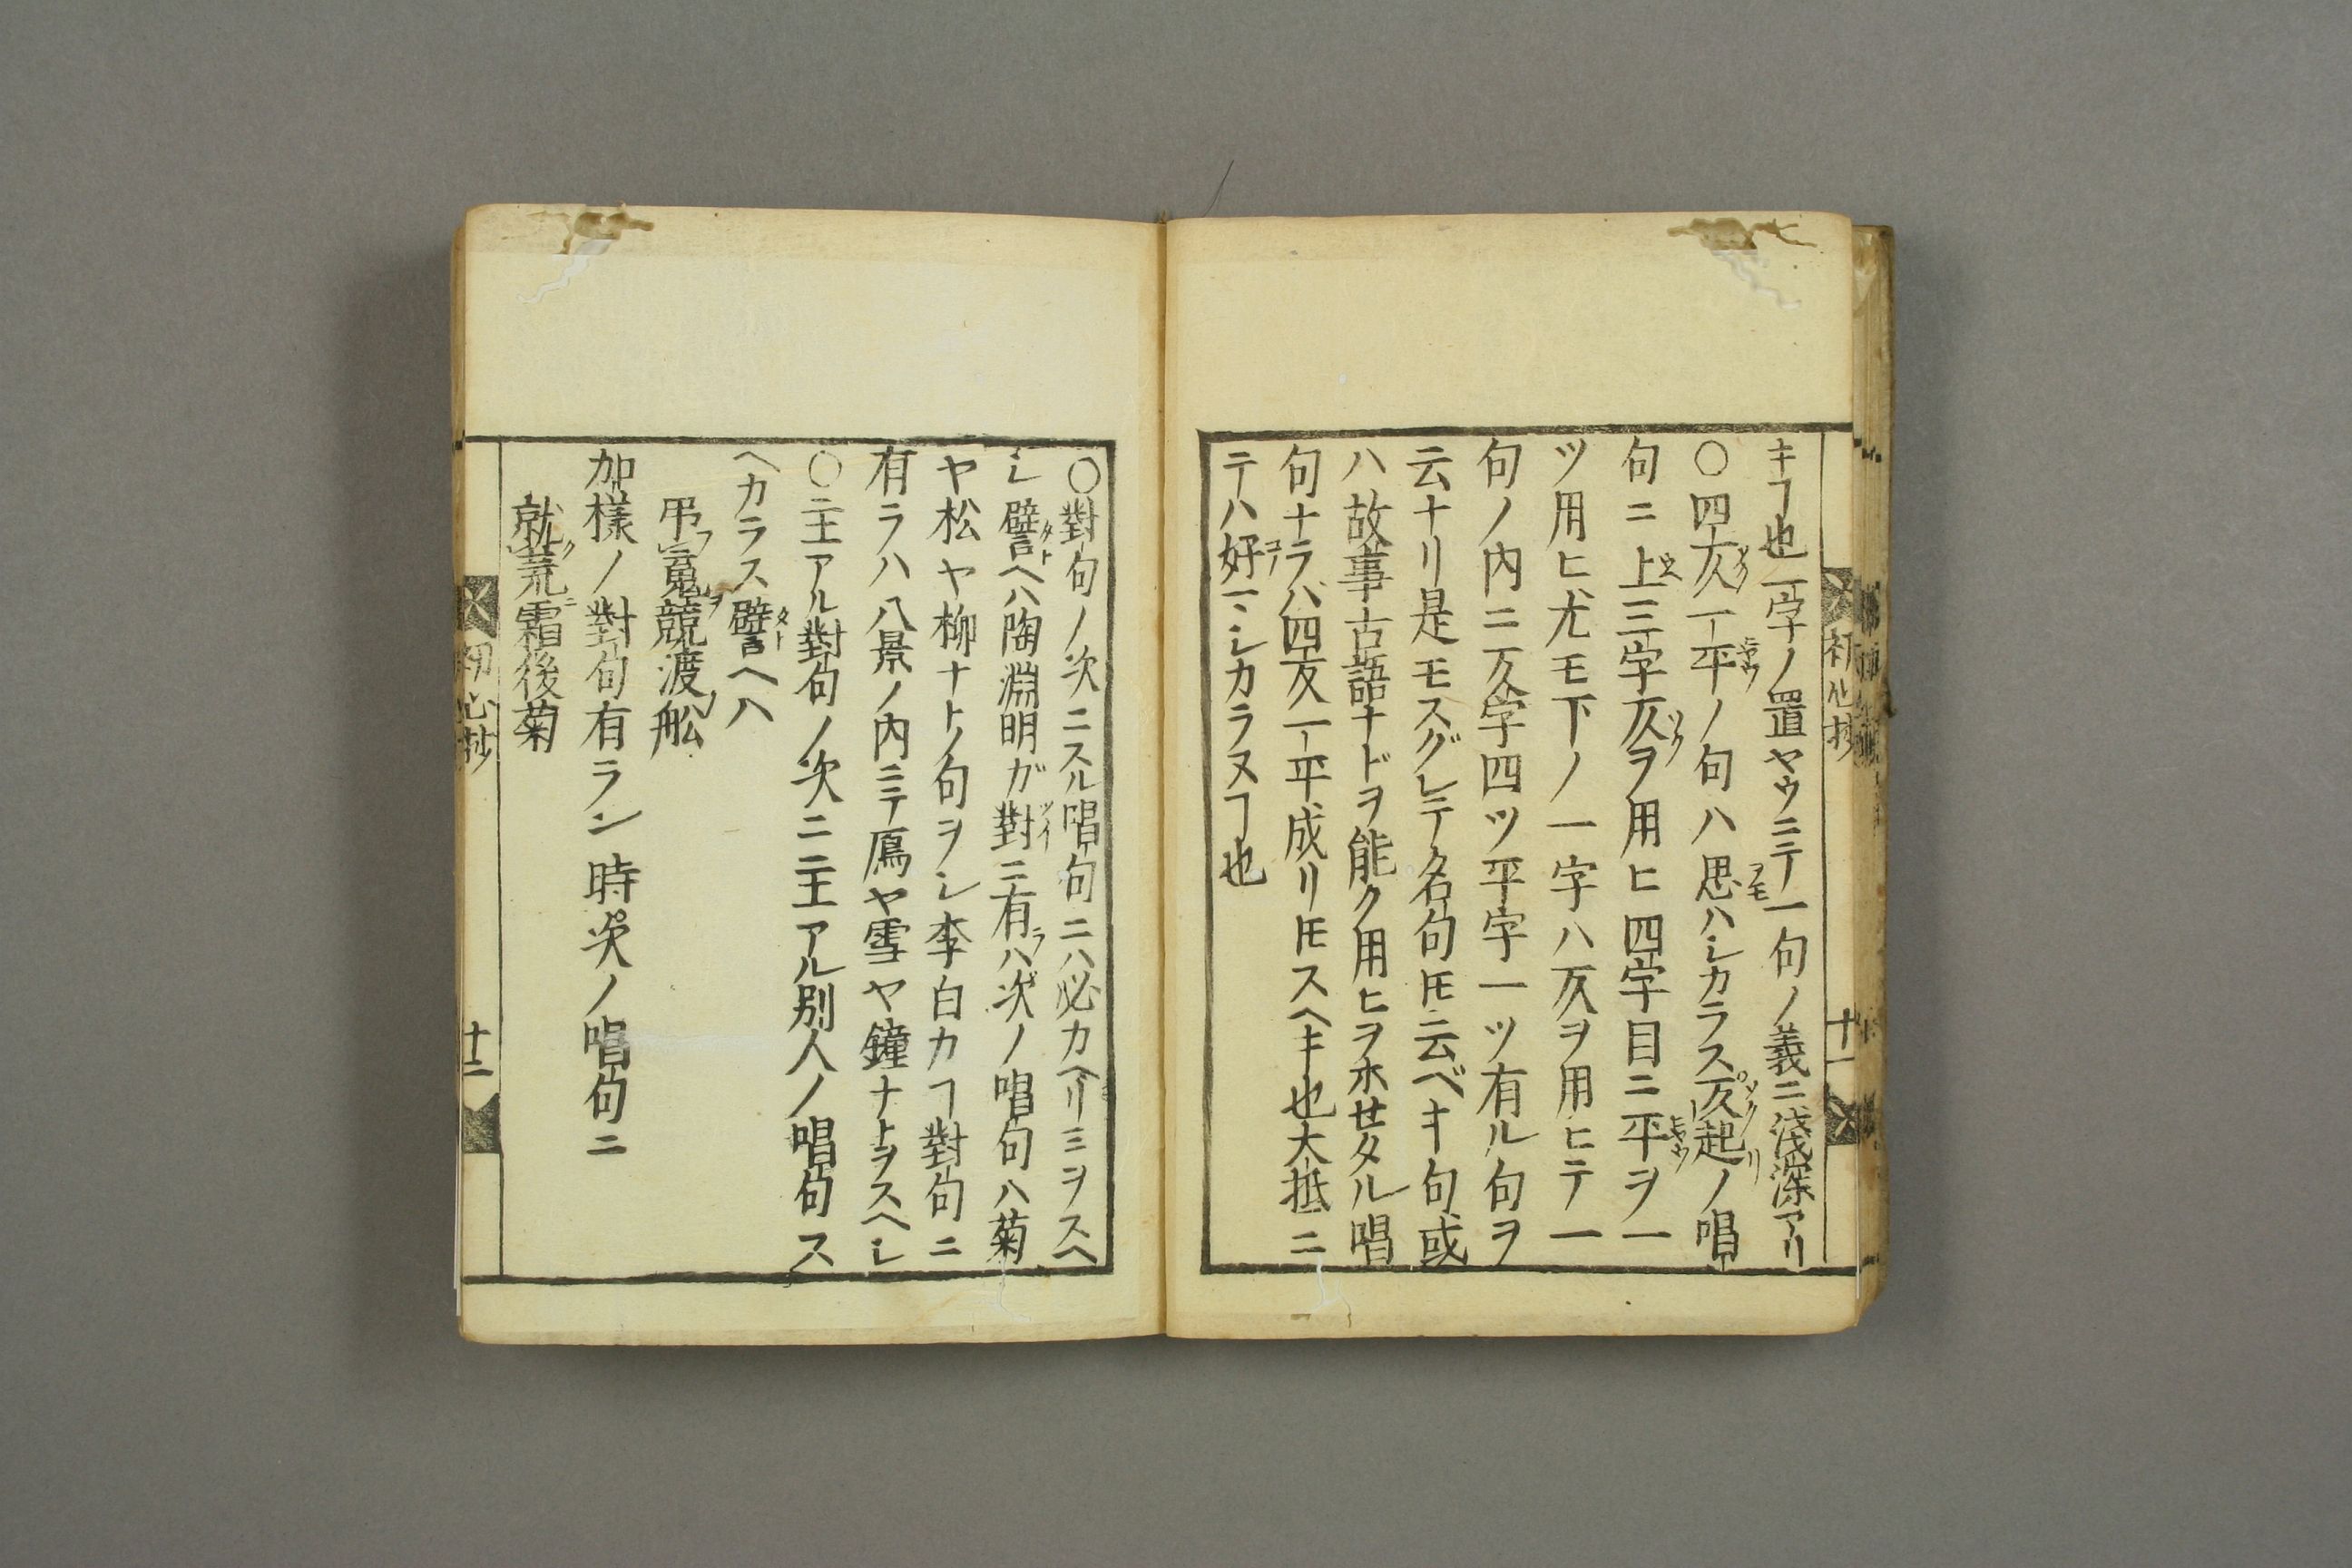 キヿ也一字ノ置ヤウニテ一句ノ義ニ淺深アリ
〇四仄一平ノ句ハ思ハシカラス仄起ノ唱
句ニ上三字仄ヲ用ヒ四字目ニ平ヲ一
ツ用ヒ尤モ下ノ一字ハ仄ヲ用ヒテ一
句ノ内ニ仄字四ツ平字一ツ有ル句ヲ
云ナリ是モスグレテ名句𪜈云ベキ句或
ハ故事古語ナドヲ能ク用ヒヲホせタル唱
句ナラバ四仄一平成リ𪜈スヘキ也大抵ニ
テハ好マシカラヌヿ也
初心抄
十一
〇對句ノ次ニスル唱句ニハ必カヘリミヲスヘ
シ譬ヘハ陶淵明ガ對ニ有ラハ次ノ唱句ハ菊
ヤ松ヤ柳ナトノ句ヲシ李白カヿ對句ニ
有ラハ八景ノ内ニテ鴈ヤ雪ヤ鐘ナトヲスヘシ
〇二王アル對句ノ次ニ二王アル別人ノ唱句ス
ヘカラス譬ヘハ
弔寃競渡舩
加樣ノ對句有ラン時次ノ唱句ニ
就荒霜後菊
初心抄
十二